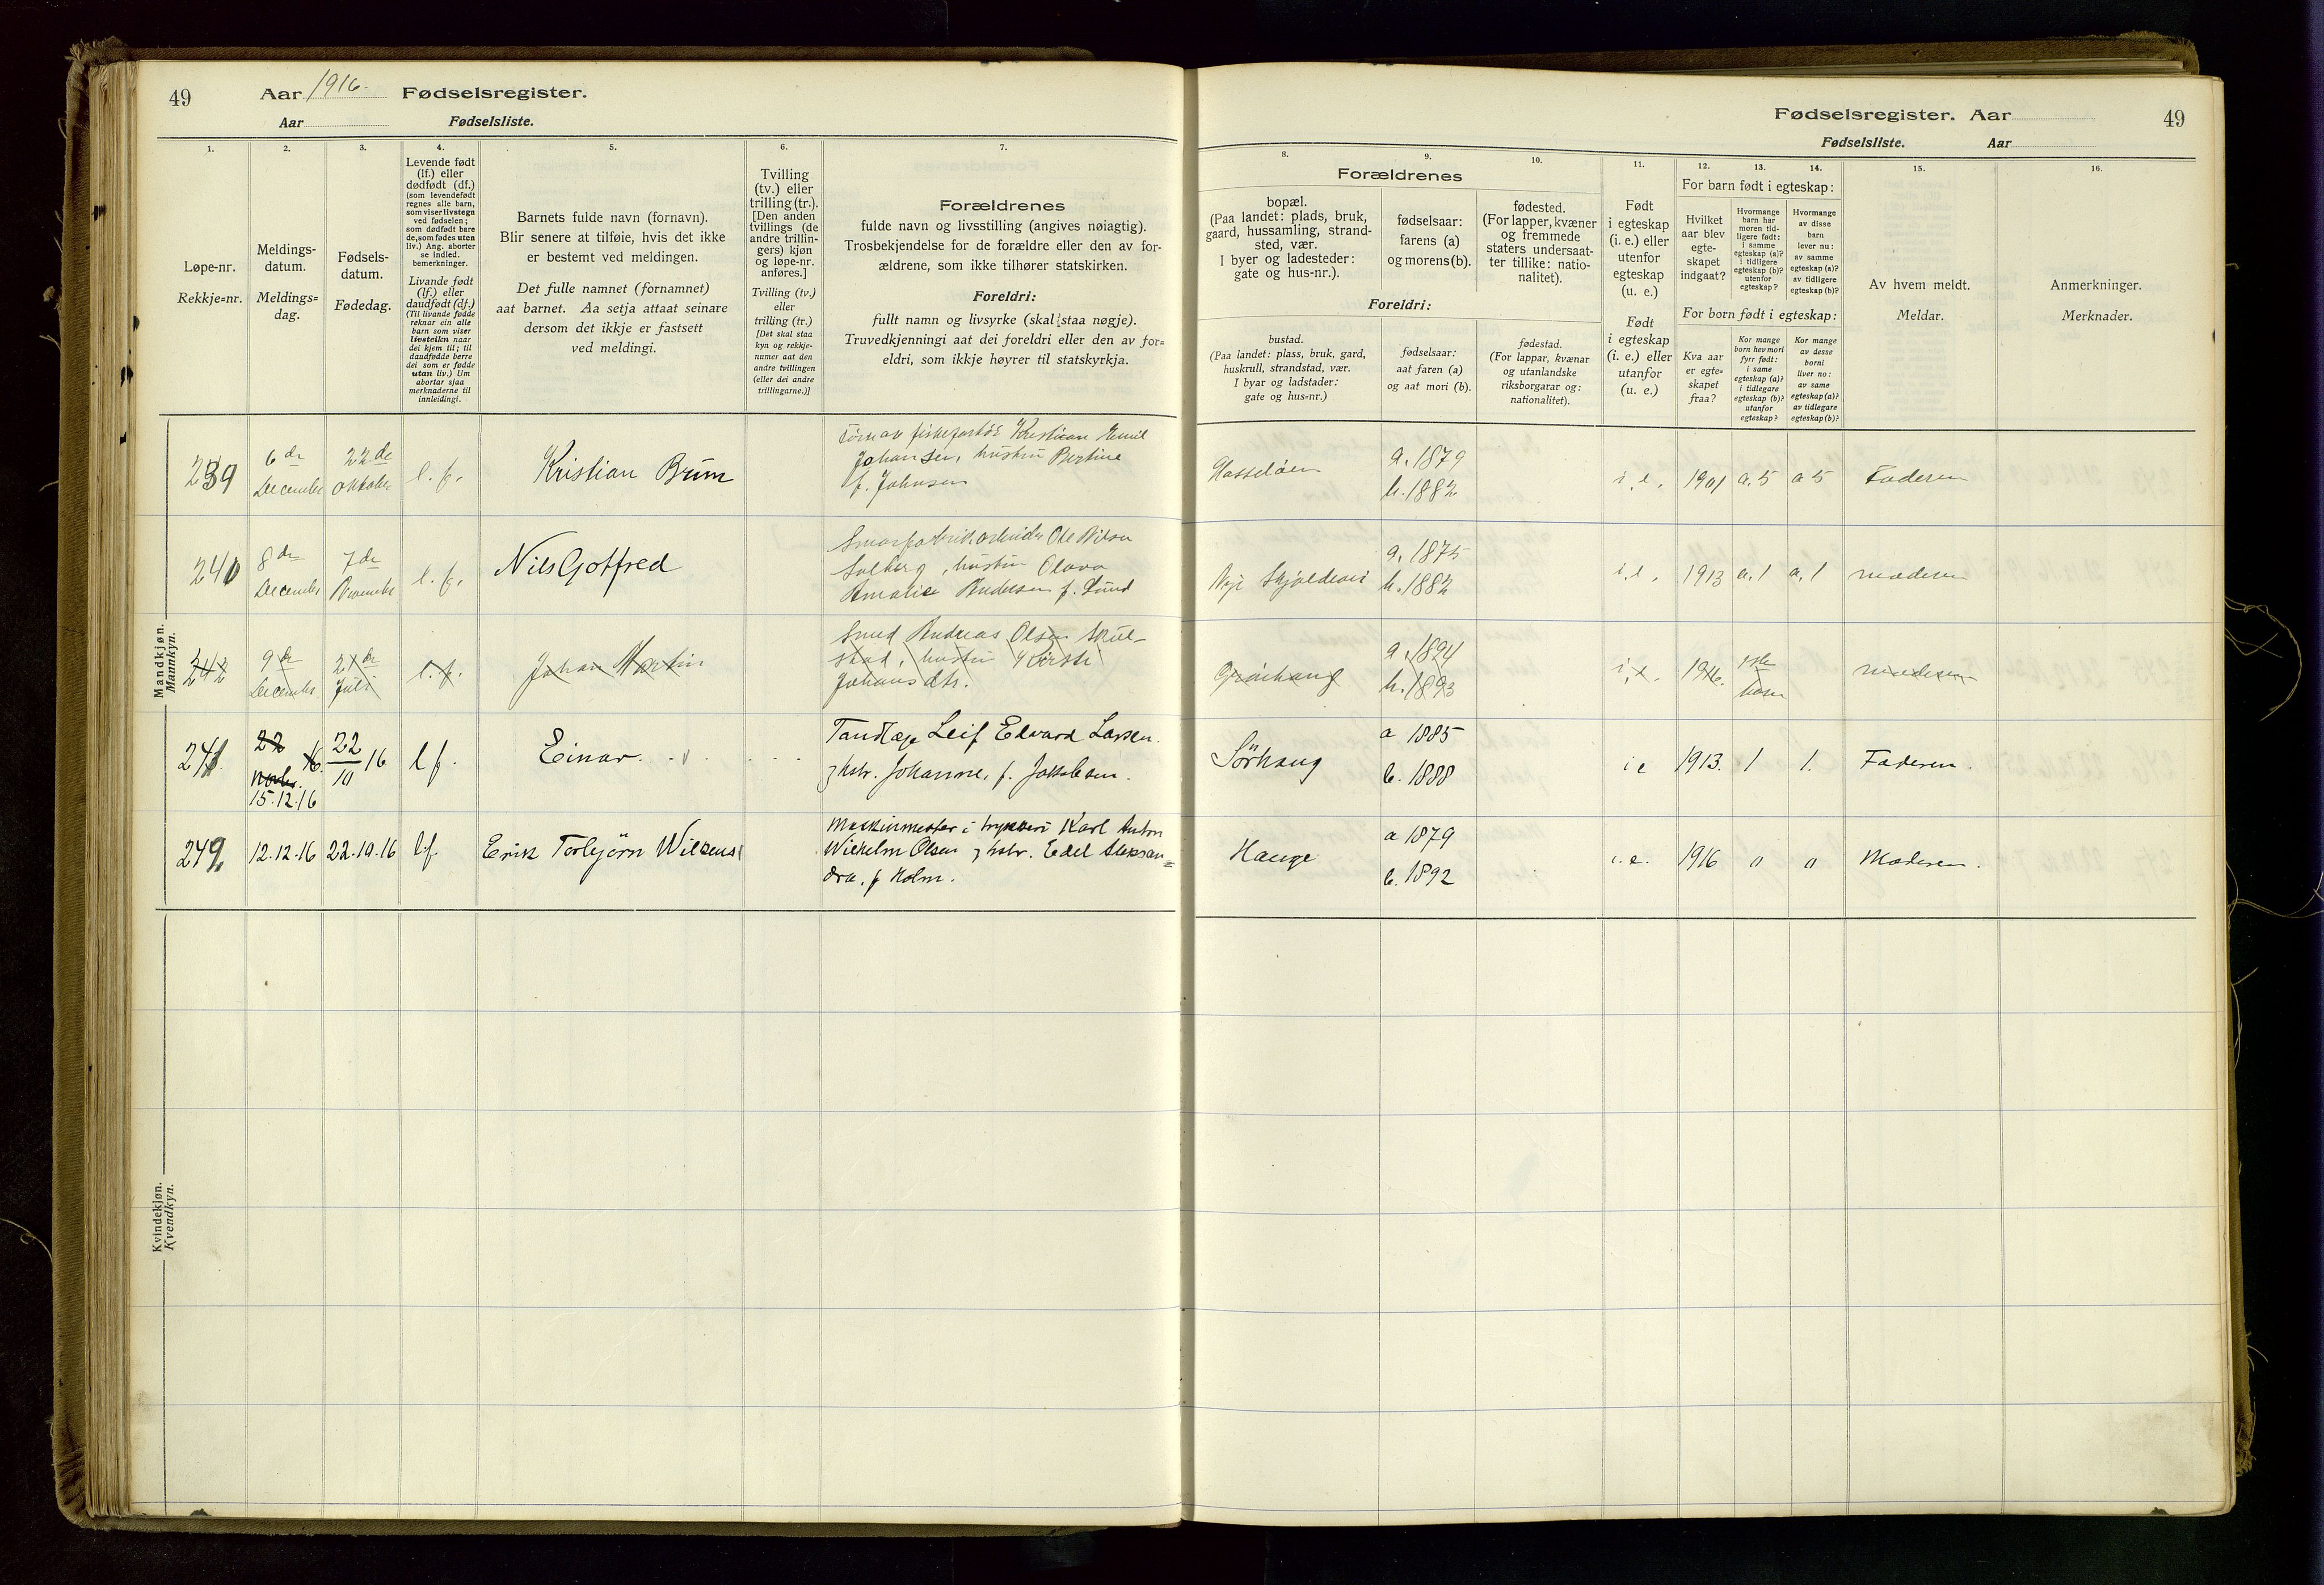 49 Aar 1916. Fødselsregister.
Aar Fødselsliste.
1.
Løpe-nr.
Rekkje=nr.
2.
Meldings-
datum.
Meldings=
dag.
3.
Fødsels-
datum.
Fødedag.
4.
Levende født
(lf.) eller
dødfødt (df.)
(som levendefødt
regnes alle barn,
som viser livstegn
ved fødselen;
som dødfødt bare
de, som fødes uten
liv.) Ang. aborter
se indled.
bemerkninger.
Livande født
(lf.) eller
daudfødt (df.)
(Til livande fødde
reknar ein alle
barn som viser
livsteikn naar
dei kjem til; til
daudfødde berre
dei som er fødde
utan liv.) Um
abortar sjaa
merknaderne til
innleidingi.
5.
Barnets fulde navn (fornavn).
Blir senere at tilføie, hvis det ikke
er bestemt ved meldingen.
Det fulle namnet (fornamnet)
aat barnet. Aa setja attaat seinare
dersom det ikkje er fastsett
ved meldingi.
6.
Tvilling
(tv.) eller
trilling (tr.).
[Den anden
tvillings (de
andre trillin-
gers) kjøn
og løpe-nr.
anføres.]
Tvilling (tv.)
eller
trilling (tr.)
[Det skal staa
kyn og rekkje-
numer aat den
andre tvillingen
(eller dei andre
trillingarne.)]
7.
Forældrenes
fulde navn og livsstilling (angives nøiagtig).
Trosbekjendelse for de forældre eller den av for-
ældrene, som ikke tilhører statskirken.
Foreldri:
fullt namn og livsyrke (skal staa nøgje).
Truvedkjenningi aat dei foreldri eller den av for=
eldri, som ikkje høyrer til statskyrkja.
Mandkjøn.
Mannkyn.
239
6 de
December
22 de
Oktober
l. f.
Kristian Brim
Kristian Emil
Johansen, hustru Bertine
f. Johnsen
240
8 de
December
7 de
November
l. f.
Nils Gotfred
Ole Nilsen
Solberg, hustru Olava
Amalie Andersen f. Lund
242
9 de
December
21 de
Juli
l. f.
Johan Martin
Smed Andreas Olsen Skul-
stad, hustru Kirsti
Johans dtr.
241.
22 16.
novbr.
15.12.16
22
10 16
l f.
Einar.
Tandlæge Leif Edvard Larsen.
hstr. Johanne, f. Jakobsen.
242
12.12.16
22.10.16
l.f.
Erik Torbjörn Wilsens
Maskinmester i trykkeri Karl Anton
Wilhelm Olsen hstr. Edel Aleksan=
dra, f Holm.
Kvindekjøn.
Kvendkyn.
Fødselsregister. Aar 49
Fødselsliste. Aar
Forældrenes
8.
bopæl.
(Paa landet: plads, bruk,
gaard, hussamling, strand-
sted, vær.
I byer og ladesteder:
gate og hus-nr.).
9.
fødselsaar:
farens (a)
og morens (b).
10.
fødested.
(For lapper, kvæner
og fremmede
staters undersaat-
ter tillike: natio-
nalitet).
Foreldri:
bustad.
(Paa landet: plass, bruk, gard,
huskrull, strandstad, vær.
I byar og ladstader:
gate og hus=nr.)
fødselsaar:
aat faren (a)
og aat mori (b).
fødestad.
(For lappar, kvænar
og utanlandske
riksborgarar og:
nationalitet).
11.
Født
i egteskap
(i. e.) eller
utenfor
egteskap
(u. e.)
Født
i egteskap
(i. e.) eller
utanfor
(u. e.)
For barn født i egteskap:
12.
Hvilket
aar blev
egte-
skapet
indgaat?
13.
Hvormange
barn har
moren tid-
ligere født:
i samme
egteskap (a)?
i tidligere
egteskap (b)?
utenfor
egteskap?
14.
Hvormange
av disse
barn
lever nu:
av samme
egteskap (a)?
av tidligere
egteskap (b)?
For born født i egteskap:
Kva aar
er egte=
skapet
fraa?
Kor mange
born hev mori
fyrr født:
i same
egteskap (a)?
i tidlegare
egteskap (b)?
utanfor
egteskap?
Kor mange
av desse
borni
liver no:
av same
egteskap (a)?
av tidlegare
egteskap (b)?
15.
Av hvem meldt.
Meldar.
16.
Anmerkninger.
Merknader.
Hasseløen
a. 1879
b. 1882
i. e.
1901
a. 5
a 5
Faderen
Skjoldavei
a. 1875
b. 1882
i. e.
1913
a. 1
a. 1
moderen
Grønhaug
a. 1894
b. 1893
i. e.
1916.
1ste
barn
moderen
Sörhaug
a 1885
b. 1888
i e
1913.
1
1.
Faderen.
Hauge
a 1879
b. 1892
i. e.
1916
0
0
Moderen.